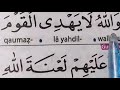 وَاللّٰهُ لَا يَهْدِى الْقَوْمَ
qaumaẓ- lâ yahdil- wal
عَلَيْهِمْ لَعْنَةَ اللّٰهِ